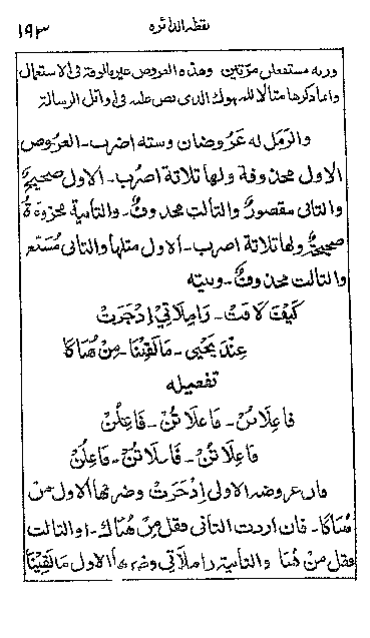 نقطه الدائره ١٩٣
وزنه مستفعلن مرّتين وهذه العروض غير مالوفة في الاستعمال
وانما ذكرها مثالا للمنهوك الذى نص عليه في اوائل الرسالة
والرَمَل له عَرُوضان وستة اضرب۔ العرُوض
الاولى محذوفة ولها ثلاثة اضرُب۔ الاول صحيحٌ
والثانى مقصورٌ والثالث محذوفٌ۔ والثانية مجزوءَةٌ
صحيحةٌ ولها ثلاثة اضرب۔ الاول مثلها والثانى مُسَبّغ
والثالث محذوفٌ۔ وبيته
كَيْفَ لَاقَتْ۔ رَامِلَاتِي إِذْ جَرَتْ
عِنْدَ يَحْيى۔ مَا لَقِيْنَا۔ مِنْ هُنَاكَا
تفعيله
فَاعِلَاتُنْ۔ فَاعِلَاتُنْ۔ فَاعِلُنْ
فَاعِلَاتُنْ۔ فَاعِلَاتُنْ۔ فَاعِلُنْ
فان عروضه الاولى إِذْ جَرَتْ وضربها الاول مِنْ
هُنَاكَا۔ فان اردت الثانى فقل مِنْ هُنَاكْ۔ او الثالث
فقل مِنْ هُنَا والثانية رَامِلَاتِي وضربها الاول مَا لَقِيْنَا